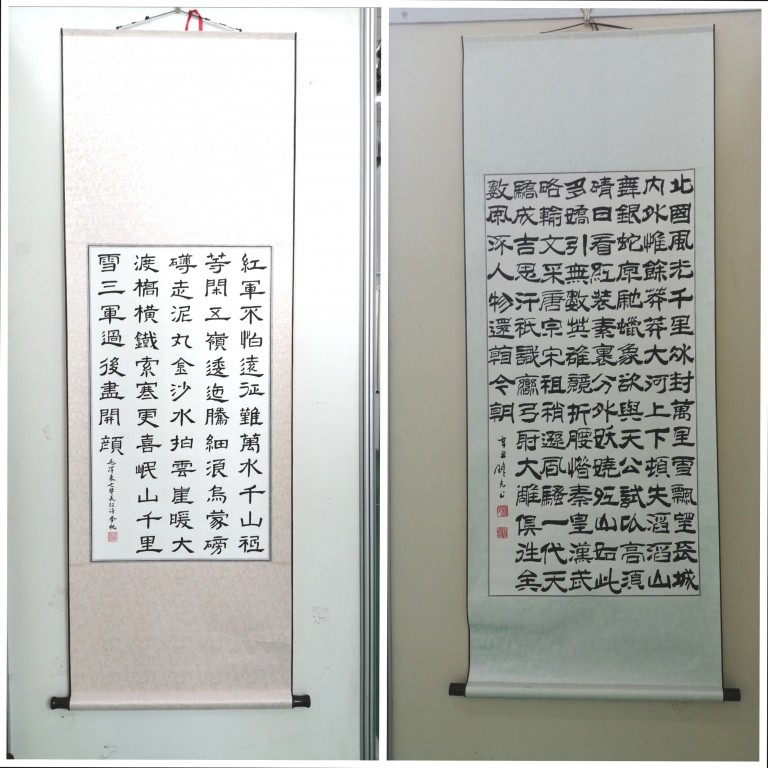 紅軍不怕遠征難萬水千山祗
等閑五嶺逶迤騰細浪烏蒙磅
礴走泥丸金沙水拍雲崖暖大
渡橋橫鐵索寒更喜岷山千里
雪三軍過後盡開顔
毛澤東七律長征詩
北國風光千里冰封萬里雪飄望長城
内外惟餘莽莽大河上下頓失滔滔山
舞銀蛇原馳蠟象欲與天公試比高須
晴日看紅装素裹分外妖嬈江山如此
多嬌引無數英雄競折腰惜秦皇漢武
略輸文采唐宗宋祖稍遜風騷一代天
驕成吉思汗祇識彎弓射大雕俱往矣
數風流人物還看今朝
辛丑